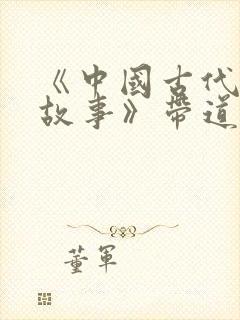 《中國古代
故事》帶道
董軍